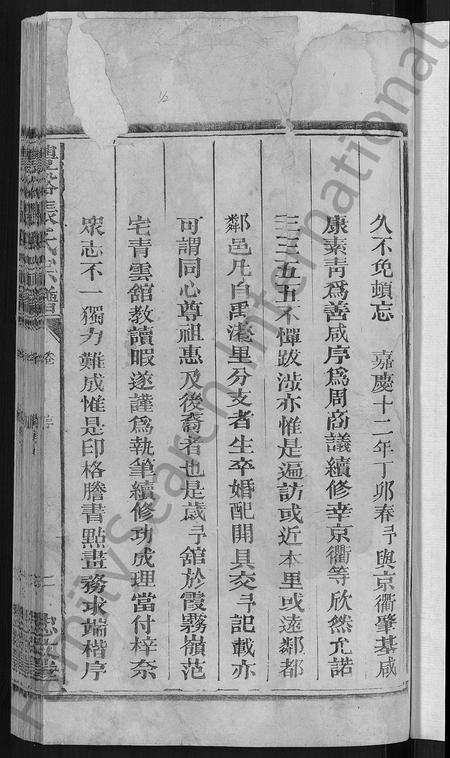 久不免頓忘 嘉慶十二年丁卯春予與京衢肇基咸
康素靑爲善咸序爲周商議續修幸京衢等欣然允諾
三三五五不憚跋涉亦惟是遍訪或近本里或遠鄰都
鄰邑凡自禹濠里分支者生卒婚配開具交予記載亦
可謂同心尊祖惠及後裔者也是歲予舘於霞霧嶺范
宅青雲舘教讀暇遂謹爲執筆續修功成理當付梓奈
衆志不一獨力難成惟是印格謄書點畫務求端楷序
張氏宗譜
卷
二
FamilySearch International